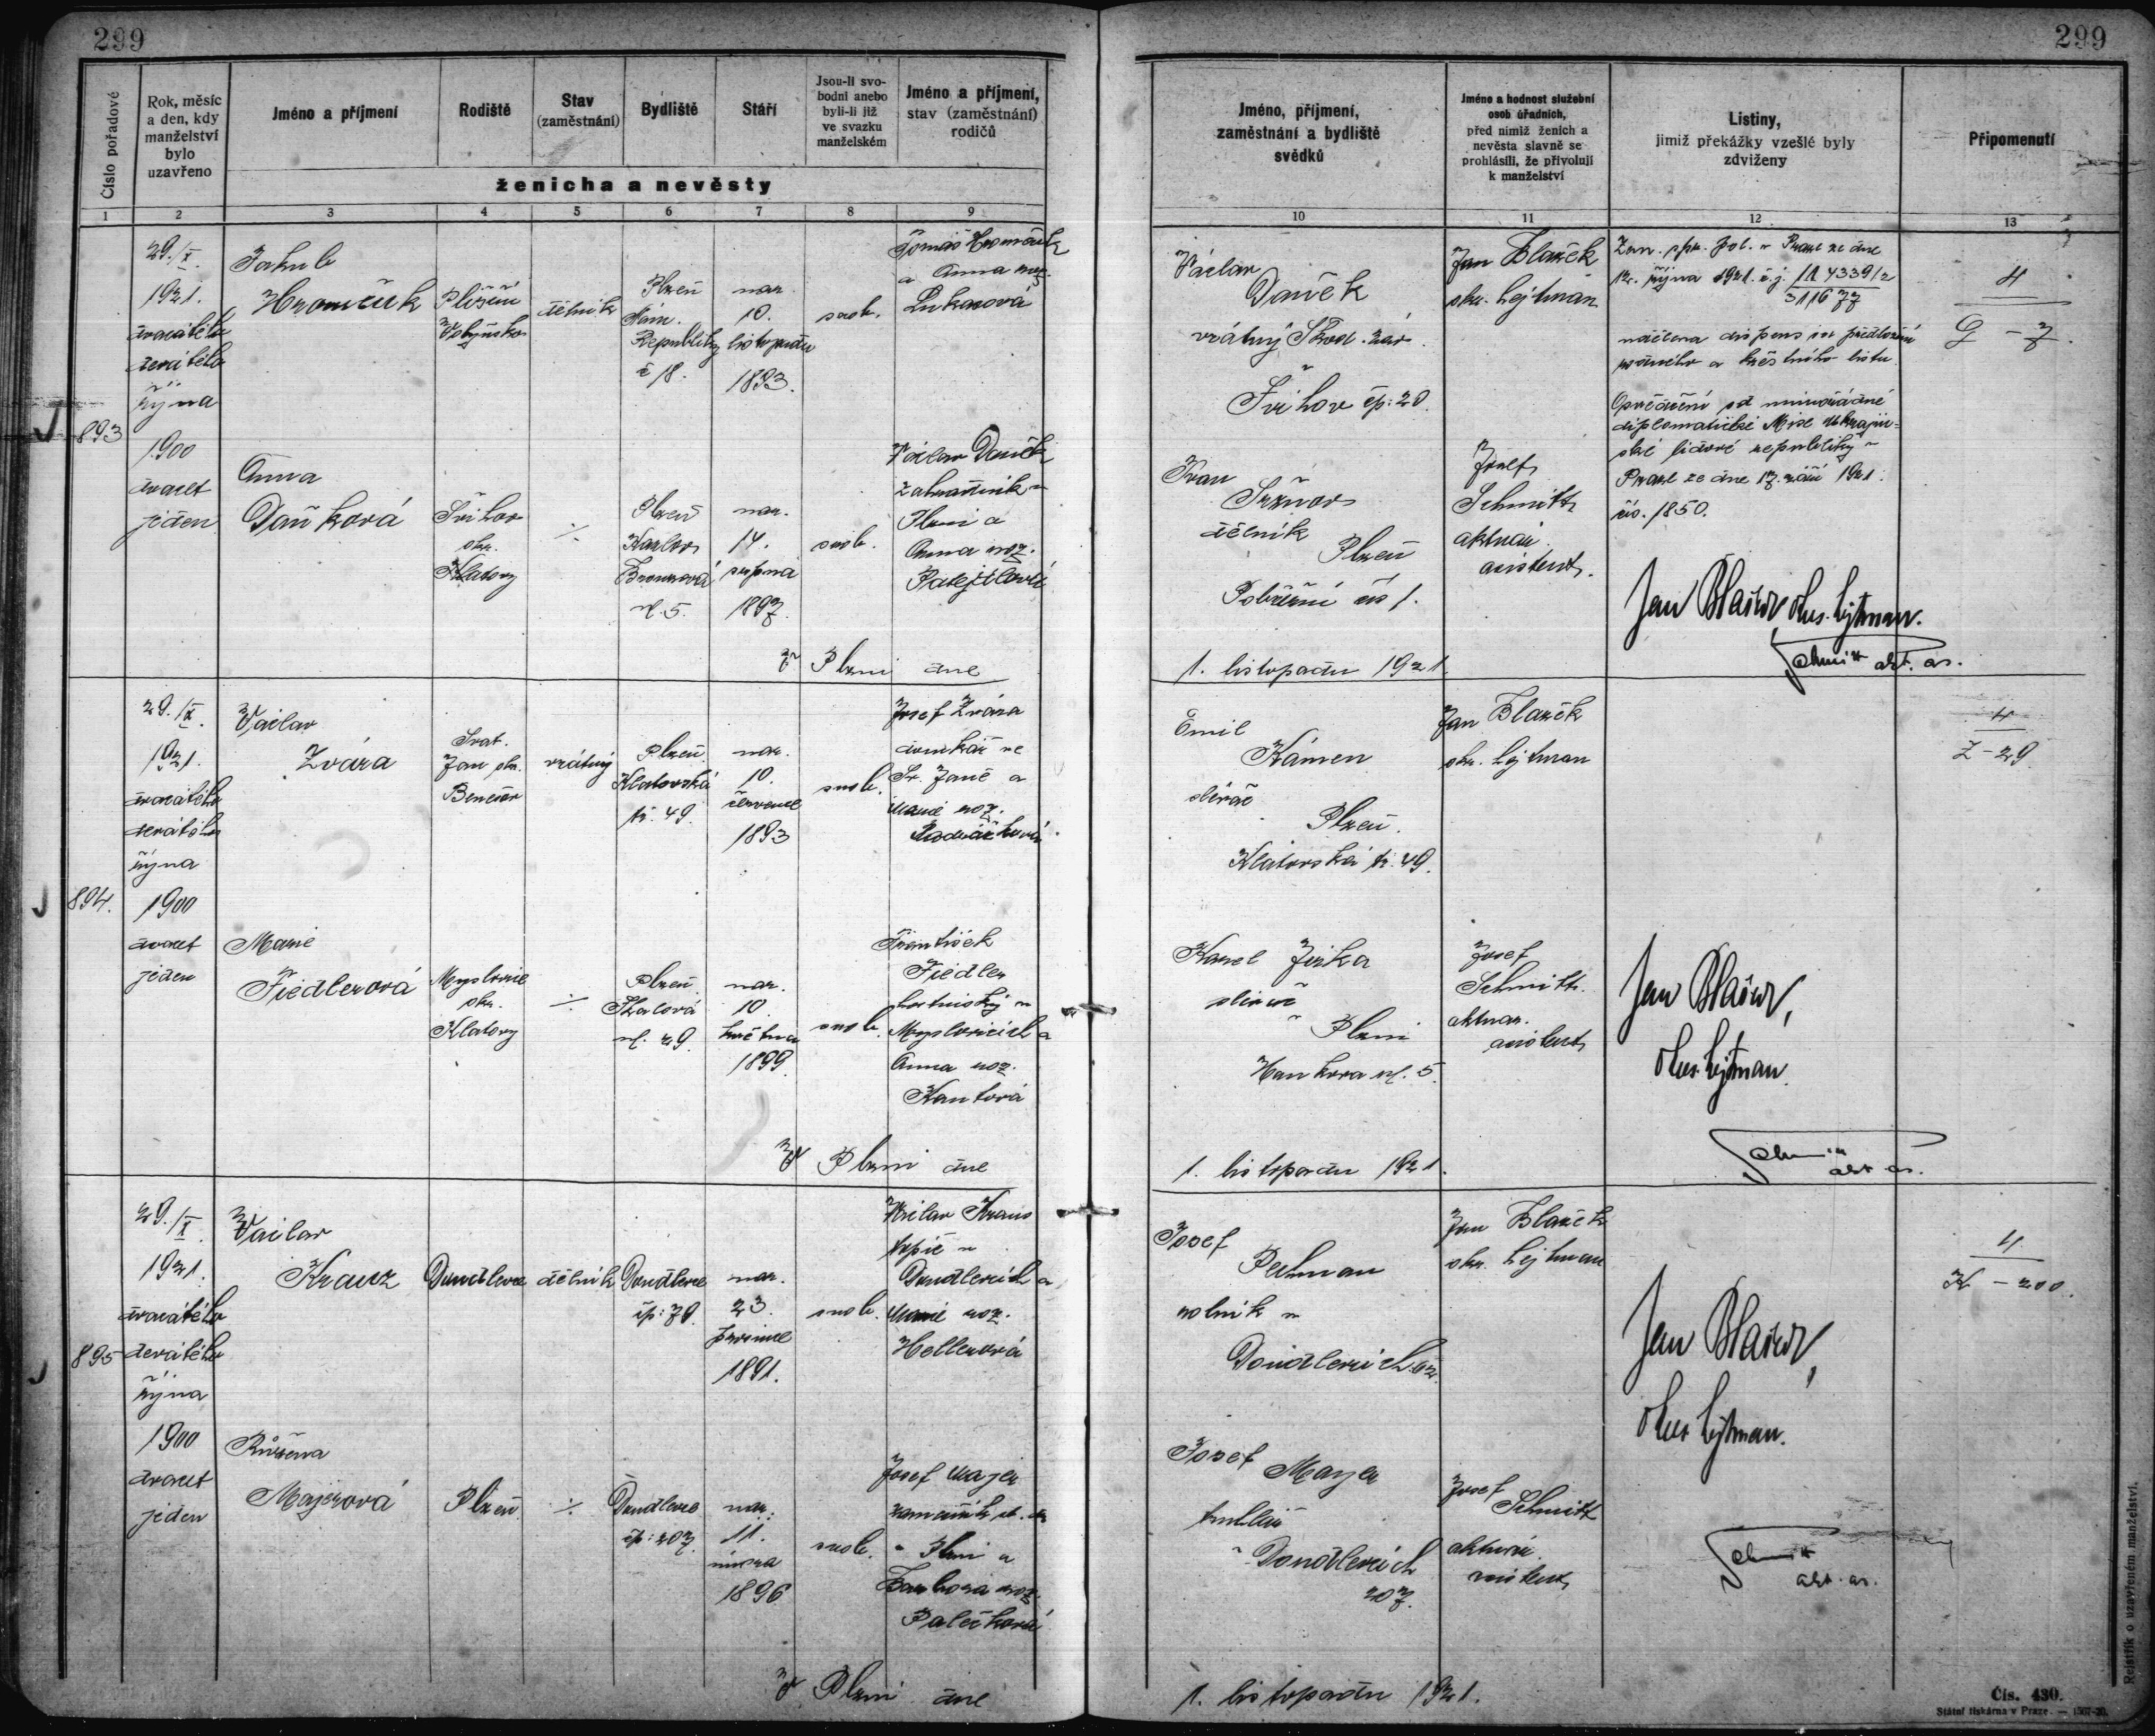 299
299
Číslo pořadové
Rok, měsíc
a den, kdy
manželství
bylo
uzavřeno
Jméno a příjmení
Rodiště
Stav
(zaměstnání)
Bydliště
Stáří
Jsou-li svo-
bodni anebo
byli-li již
ve svazku
manželském
Jméno a příjmení,
stav (zaměstnání)
rodičů
ženicha a nevěsty
1 2 3 4 5 6 7 8 9
Jméno, příjmení,
zaměstnání a bydliště
svědků
Jméno a hodnost služební
osob úředních,
před nimiž ženich a
nevěsta slavně se
prohlásili, že přivolují
k manželství
Listiny,
jimiž překážky vzešlé byly
zdviženy
Připomenutí
10 11 12 13
893
29./X.
1921.
dvacátého
devátého
října
1900
dvacet
jeden
Jakub
Hromčuk
dělník
Plzeň
Nám.
Republiky
č 18.
nar.
10.
listopadu
1893.
svob.
Tomáš
a Anna roz.
Lukasová
Anna
Daňková
Švihov
okr.
Klatovy
÷
Plzeň
Karlov
ul. 5.
nar.
14.
srpna
1897.
svob.
Václav Daněk
zahradník v
Plzni a
Anna roz.
Václav
Daněk
vrátný Škod. záv.
Švihov čp: 20.
Jan Blažek
okr. hejtman
října 1921. č.j.
311677
4
G – 7.
Ivan
dělník
Plzeň
Pobřežní čís 1.
Josef
Schmitt
aktuár.
asistent.
diplomatické Mise Ukrajin-
ské lidové republiky v
Praze ze dne 17. září 1921.
čís. 1850.
Jan Blažek, okres. hejtman.
Schmitt akt. as.
V Plzni dne
1. listopadu 1921.
894.
29./X.
1921.
dvacátého
devátého
října
1900
dvacet
jeden
Václav
Zvára
Svat.
Jan okr.
Benešov
vrátný
Plzeň
Klatovská
tř. 49.
nar.
10.
července
1893
svob.
Josef Zvára
domkář ve
Sv. Janě a
Marie roz.
Marie
Fiedlerová
Myslovice
okr.
Klatovy
÷
Plzeň
Skalová
ul. 29.
nar.
10.
května
1899.
svob.
František
Fiedler
hostinský v
Myslovicích a
Anna roz.
Kantová
Emil
Kámen
slévač
Plzeň.
Klatovská tř. 49.
Jan Blažek
okr. hejtman
4
Z – 29
Karel Jirka
slévač
v Plzni
Hankova ul. 5.
Josef
Schmitt.
aktuar.
asistent
Jan Blažek,
okres. hejtman.
Schmitt
akt. as.
V Plzni dne
1. listopadu 1921.
895
29./X.
1921.
dvacátého
devátého
října
1900
dvacet
jeden
Václav
Krauz
Doudlevce
dělník
Doudlevce
nar.
23.
prosince
1891.
svob.
Václav Kraus
topič v
Doudlevcích a
Marie roz.
Hellerová
Růžena
Majerová
Plzeň
÷
Doudlevce
čp: 207.
nar.
11.
února
1896
svob.
Josef Majer
v Plzni a
Barbora roz.
Palečková
Josef
Pechman
rolník v
Doudlevcích
Jan Blažek
okr. hejtman
4
K – 200.
Josef Mayer
truhlář
v Doudlevcích
207.
Josef
Schmitt
aktuár.
asistent
Jan Blažek,
okres. hejtman.
Schmitt
akt. as.
V Plzni dne
1. listopadu 1921.
Rejstřík o uzavřeném manželství.
Čís. 430.
Státní tiskárna v Praze. — 1567-20.